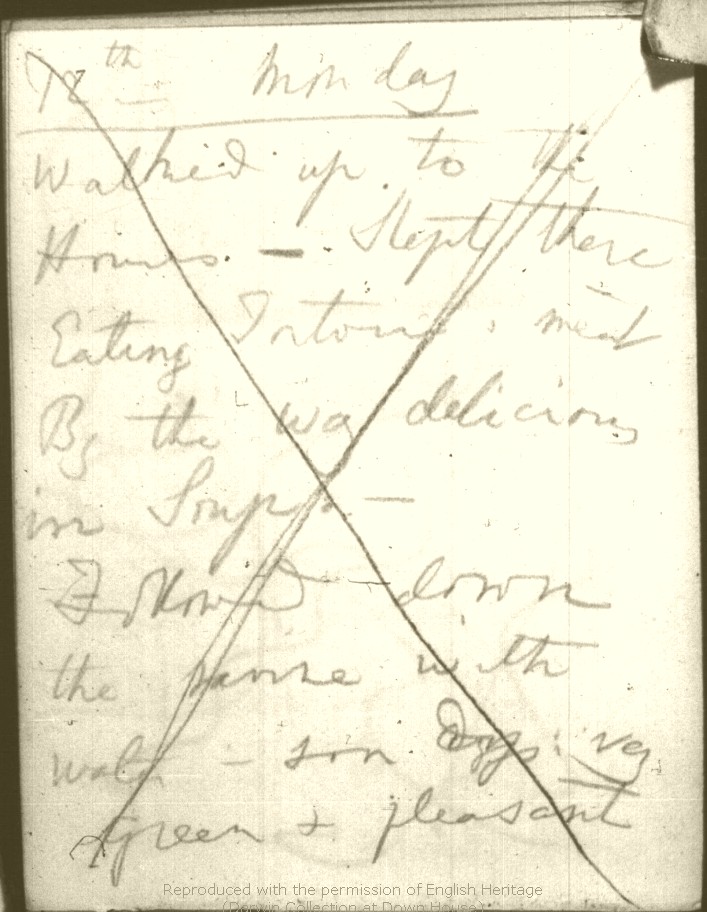 12th Monday
Walked up to the
Houses. — Slept there
Eating Tortoise meat
By the way delicious
in Soup —
Followed down
the ravine with
water —
green & pleasant
Reproduced with the permission of English Heritage
(Darwin Collection at Down House)